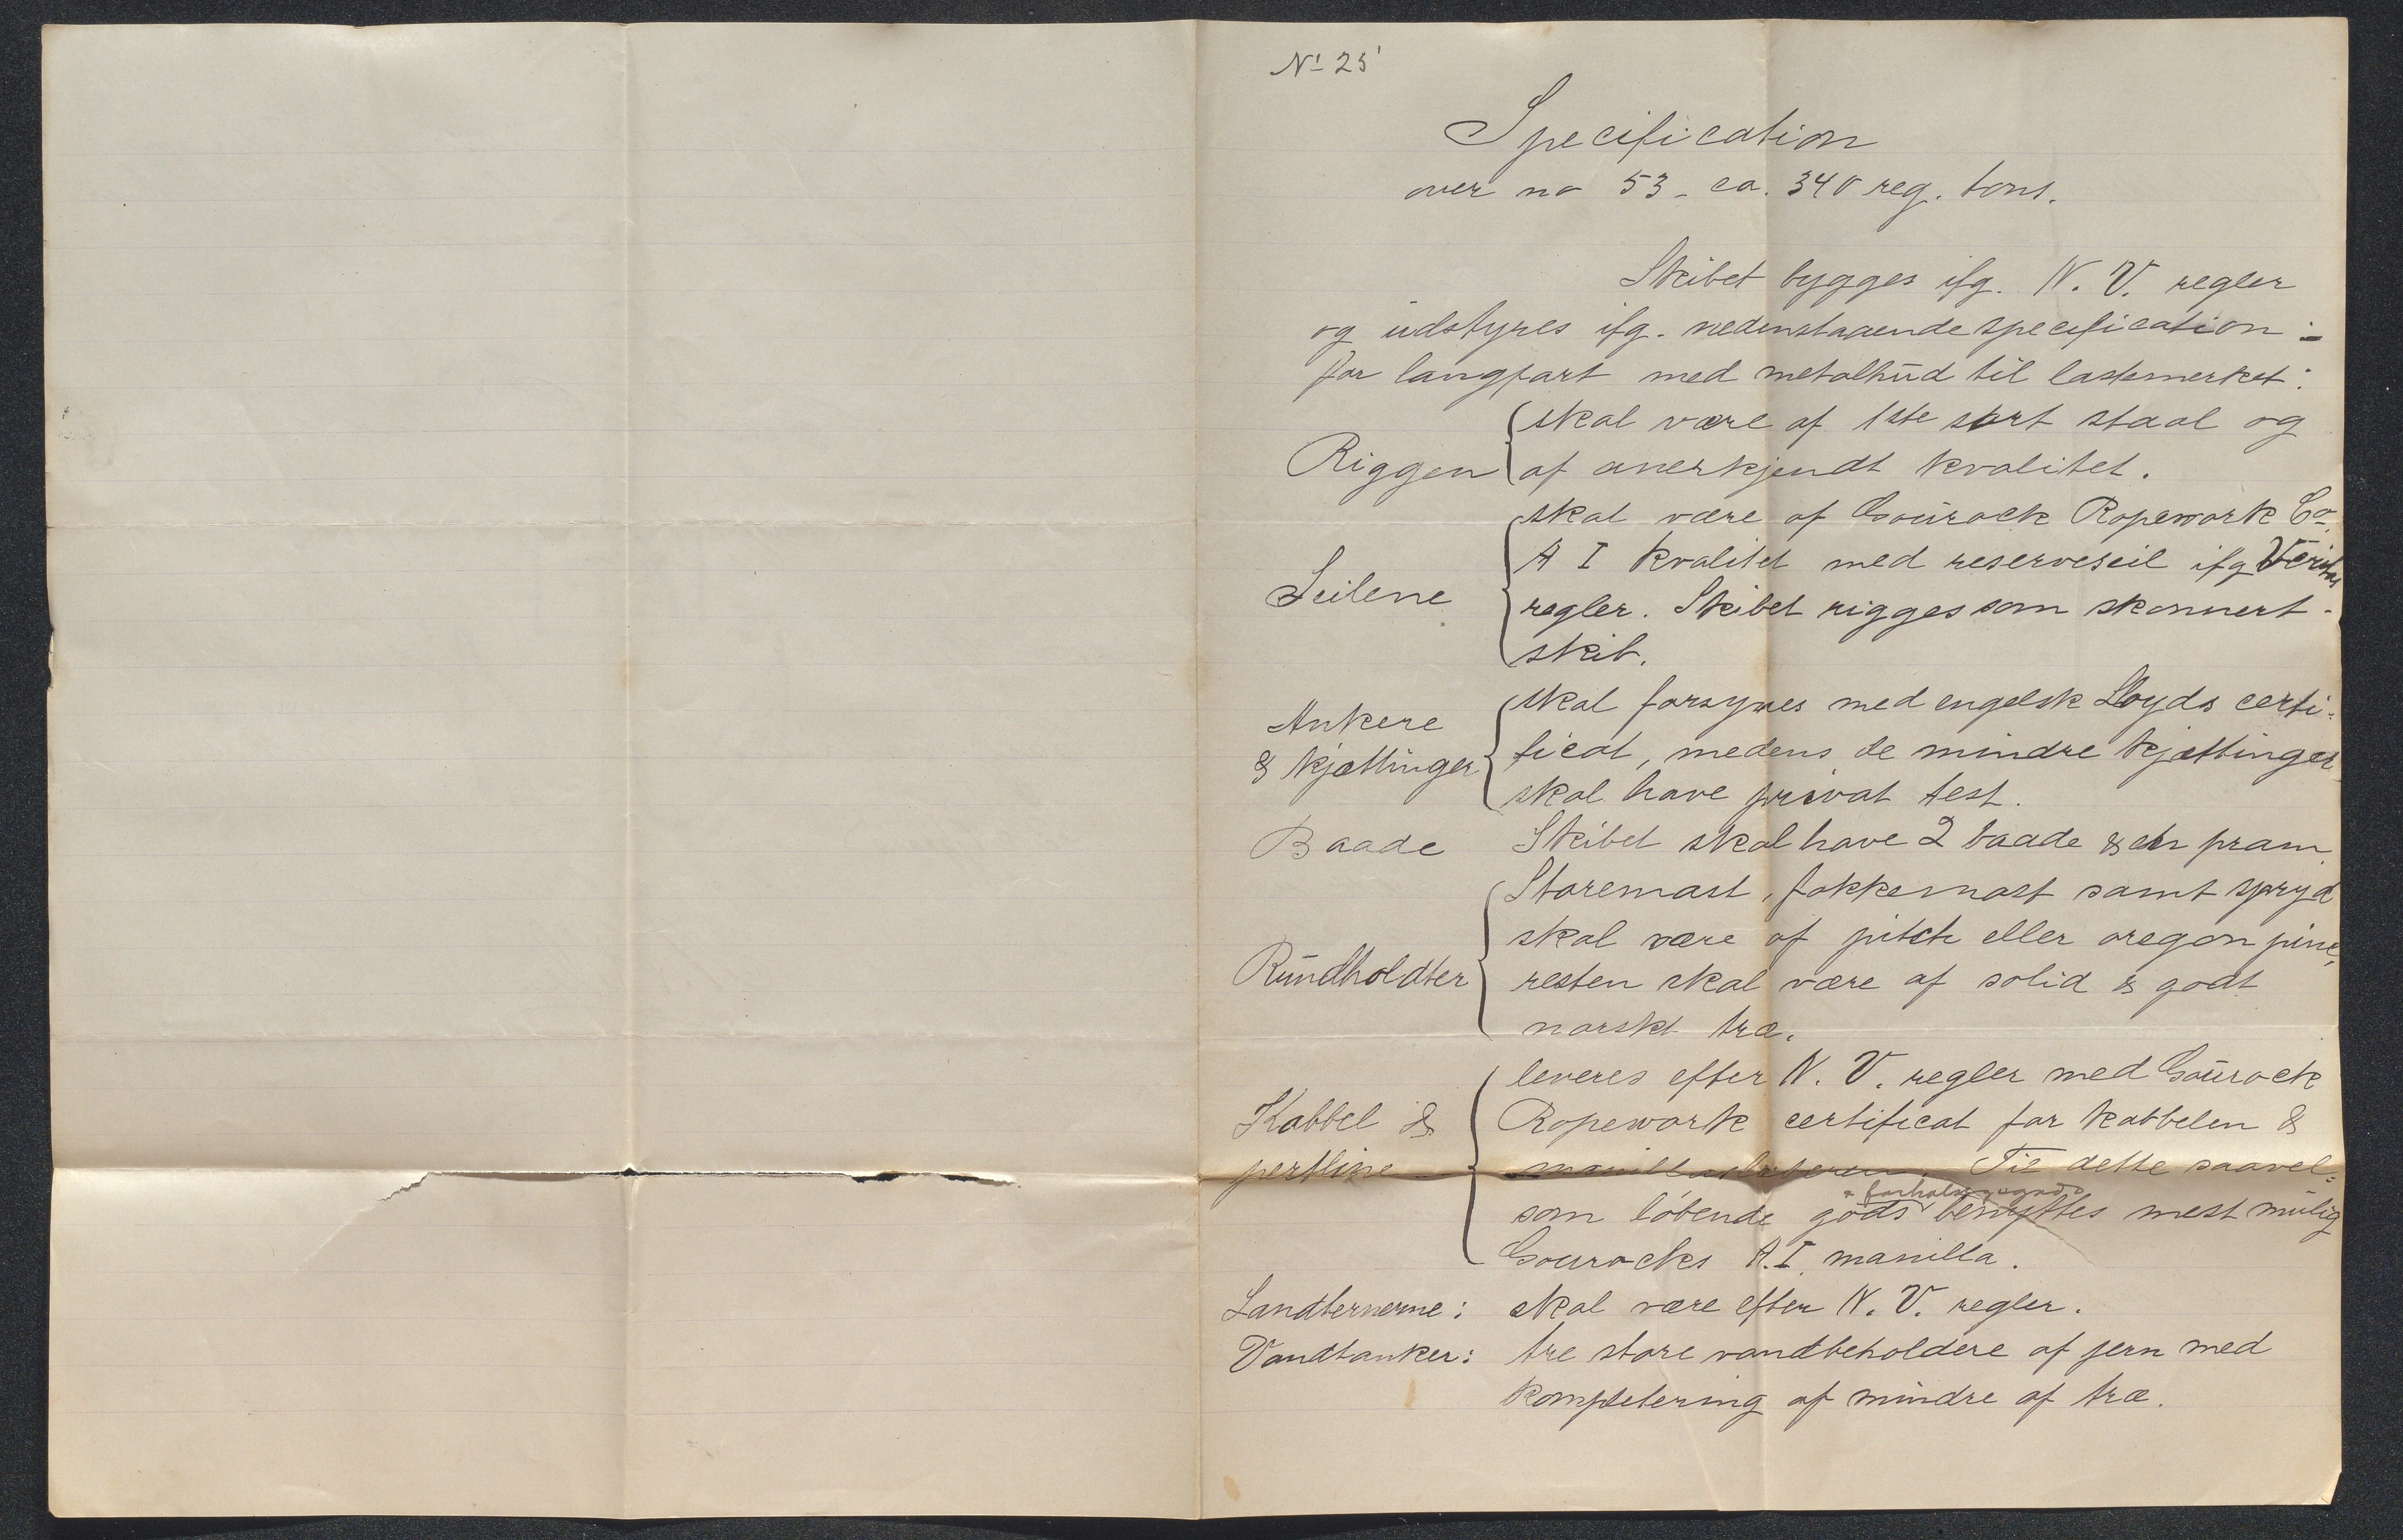 No 25
Specification
over no 53 - ca. 340 reg. tons.
Skibet bygges ifg. N. V. regler
og udstyres ifg. nedenstaaende specification:
for langfart med metalhud til lastemerket:
Riggen skal være af 1ste sort staal og
af anerkjendt kvalitet.
skal være af Gourock Ropework Co.
A I kvalitet med reserveseil ifg Veritas
Seilene regler. Skibet rigges som skonnert-
skib.
Ankere skal forsynes med engelsk Lloyds certi-
& kjættinger ficat, medens de mindre kjættinger
skal have privat test.
Baade Skibet skal have 2 baade & en pram.
Storemast, fokkemast samt spryd
skal være af pitch eller oregon pine,
Rundholdter resten skal være af solid & godt
norskt træ.
leveres efter N. V. regler med Gourock
Kabbel & Ropework certificat for kabbelen &
pertline Til dette saavel-
forhalingsgods
som løbende gods benyttes mest mulig
Gourocks A.I. manilla.
Landternerne: skal være efter N. V. regler.
Vandtanker: tre store vandbeholdere af jern med
kompletering af mindre af træ.